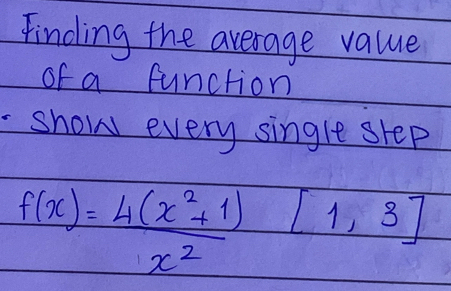 Finding the average value
of a function
• Show every single step
f(x) = 4(x² + 1) / x² [1, 3]